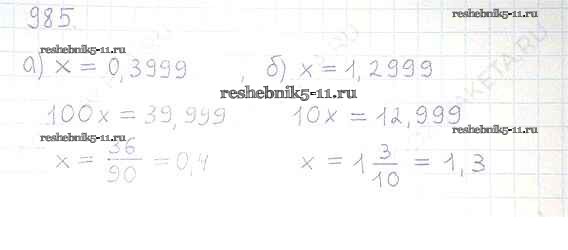 985.
reshebnik5-11.ru
а) x = 0,3999 , б) x = 1,2999
reshebnik5-11.ru
100x = 39,999 10x = 12,999
reshebnik5-11.ru
reshebnik5-11.ru
x = 36/90 = 0,4 x = 1 3/10 = 1,3